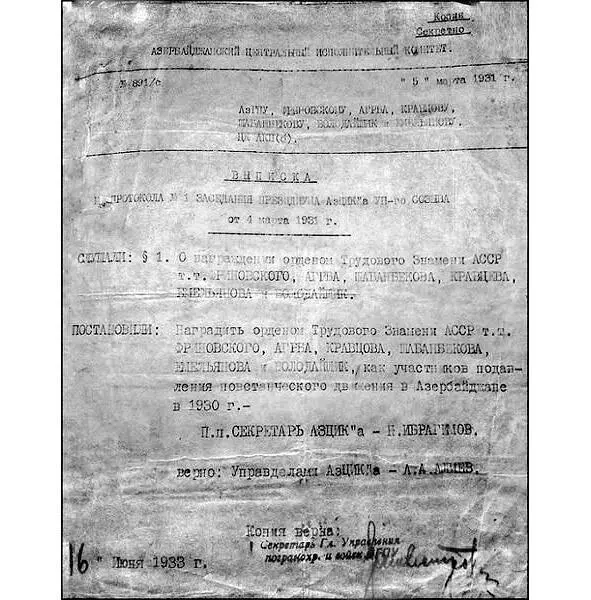 Копия
Секретно
АЗЕРБАЙДЖАНСКИЙ ЦЕНТРАЛЬНЫЙ ИСПОЛНИТЕЛЬНЫЙ КОМИТЕТ.
№ 891/с " 5 " марта 1931 г.
АзГПУ, ФРИНОВСКОМУ, АГРБА, КРАВЦОВУ,
ШАБАНБЕКОВУ, ВОЛОДАЙШИК и ЕМЕЛЬЯНОВУ.
ЦК АКП(б).
ВЫПИСКА
ИЗ ПРОТОКОЛА № 1 ЗАСЕДАНИЯ ПРЕЗИДИУМА АзЦИК"а УП-го СОЗЫВА
от 4 марта 1931 г.
СЛУШАЛИ: § 1. О награждении орденом Трудового Знамени АССР
т.т.ФРИНОВСКОГО, АГРБА, ШАБАНБЕКОВА, КРАВЦЕВА,
ЕМЕЛЬЯНОВА и ВОЛОДАЙШИК.
ПОСТАНОВИЛИ: Наградить орденом Трудового Знамени АССР т.т.
ФРИНОВСКОГО, АГРБА, КРАВЦОВА, ШАБАНБЕКОВА,
ЕМЕЛЬЯНОВА и ВОЛОДАЙШИК, как участников подав-
ления повстанческого движения в Азербайджане
в 1930 г.-
П.п.СЕКРЕТАРЬ АЗЦИК"а - Н.ИБРАГИМОВ.
верно: Управделами АзЦИКа - А.А.АЛИЕВ.
Копия верна:
Секретарь Гл. Управления
погранохр. и войск ОГПУ
16 " Июня 1933 г.